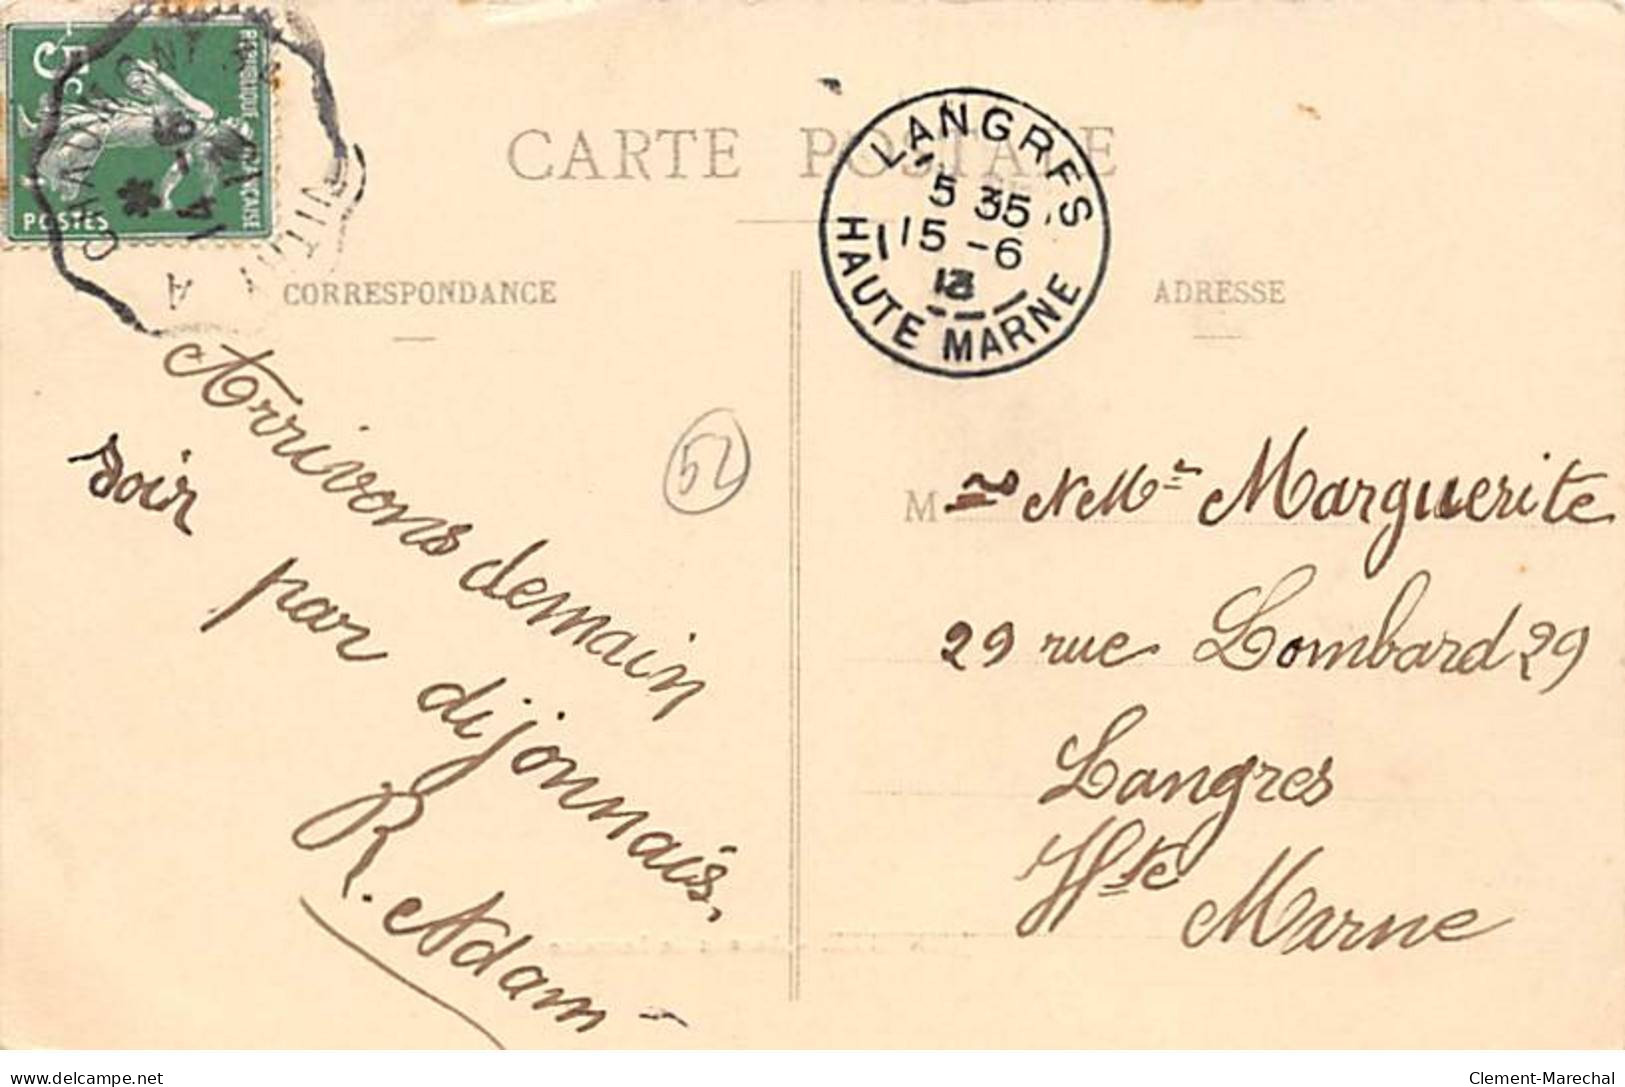 5c
RÉPUBLIQUE FRANÇAISE
POSTES
CHAUMONT
14 -6
A
CARTE POSTALE
LANGRES
5 35
15 -6
13
HAUTE MARNE
CORRESPONDANCE
ADRESSE
Arrivons demain
soir
par dijonnais.
R. Adam
52
M
Marguerite
29 rue Lombard 29
Langres
Hte Marne
Clement-Marechal
www.delcampe.net